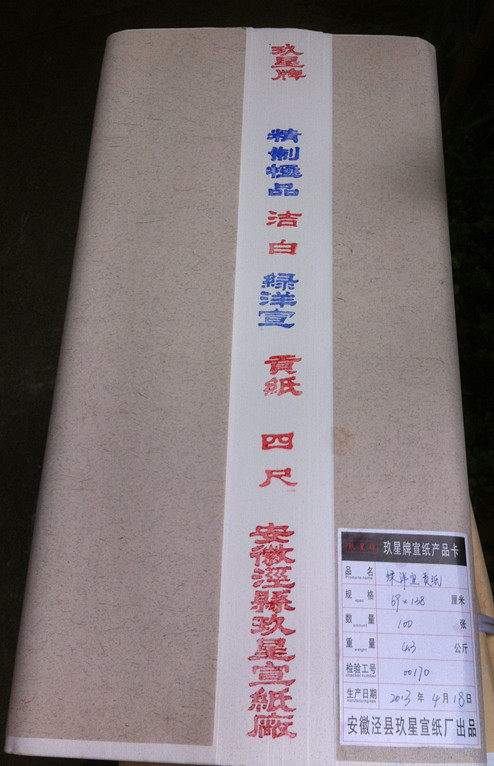 玖星牌
精制極品
洁白
緑洋宣
貢紙
四尺
安徽涇縣玖星宣紙廠
玖星牌宣纸产品卡
品名 绿洋宣贡纸
规格 69×138 厘米
数量 100 张
重量 公斤
检验工号 00170
生产日期 2013年4月18日
安徽泾县玖星宣纸厂出品